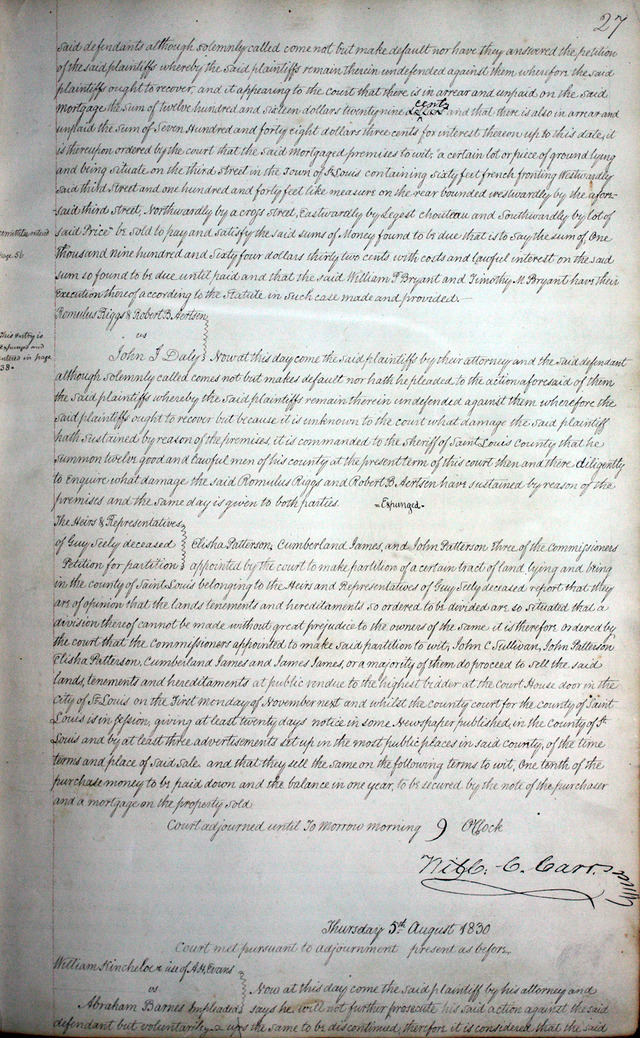 27
said defendants although solemnly called come not but make default nor have they answered the petition
of the said plaintiffs whereby the said plaintiffs remain therein undefended against them wherefore the said
plaintiffs ought to recover, and it appearing to the Court that there is in arrear and unpaid on the said
mortgage the sum of twelve hundred and sixteen dollars twenty nine cents and that there is also in arrear and
unpaid the sum of Seven Hundred and forty eight dollars three cents for interest thereon up to this date, it
is thereupon ordered by the court that the said mortgaged premises to wit, "a certain lot or piece of ground lying
and being situate on the third street in the Town of St Louis containing sixty feet french fronting Westwardly
said third street and one hundred and forty feet like measure on the rear bounded westwardly by the afore-
said third street, Northwardly by a cross street, Eastwardly by Legest Chouteau and Southwardly by lot of
said Price" be sold to pay and satisfy the said sums of Money found to be due that is to say the sum of One
thousand nine hundred and sixty four dollars thirty two cents with costs and lawful interest on the said
page 56
sum so found to be due until paid and that the said William P. Bryant and Timothy M. Bryant have their
Execution thereof according to the statute in such case made and provided.—
Romulus Riggs & Robert B. Aertsen
This entry is
vs
expunged and
entered in page
38
John F Daly Now at this day come the said plaintiffs by their attorney and the said defendant
although solemnly called comes not but makes default nor hath he pleaded to the action aforesaid of them
the said plaintiffs whereby the said plaintiffs remain therein undefended against them wherefore the
said plaintiffs ought to recover but because it is unknown to the court what damage the said plaintiff
hath sustained by reason of the premises, it is commanded to the sheriff of Saint Louis County that he
summon twelve good and lawful men of his county at the present term of this court then and there diligently
to Enquire what damage the said Romulus Riggs and Robert B. Aertsen have sustained by reason of the
premises and the same day is given to both parties. -Expunged-
The Heirs & Representatives
of Guy Seely deceased Elisha Patterson, Cumberland James, and John Patterson three of the Commissioners
Petition for partition appointed by the court to make partition of a certain tract of land lying and being
in the county of Saint Louis belonging to the Heirs and Representatives of Guy Seely deceased report that they
are of opinion that the lands tenements and hereditaments so ordered to be divided are so situated that a
division thereof cannot be made without great prejudice to the owners of the same it is therefore ordered by
the court that the Commissioners appointed to make said partition to wit, John C Sullivan, John Patterson
Elisha Patterson, Cumberland James and James James, or a majority of them do proceed to sell the said
lands, tenements and hereditaments at public vendue to the highest bidder at the Court House door in the
City of St Louis on the First monday of November next and whilst the county court for the county of Saint
Louis is in session, giving at least twenty days notice in some Newspaper published, in the County of St
Louis and by at least three advertisements set up in the most public places in said county, of the time
terms and place of said sale and that they sell the same on the following terms to wit, One tenth of the
purchase money to be paid down and the balance in one year, to be secured by the note of the purchaser
and a mortgage on the property sold
Court adjourned until To Morrow morning 9 O'Clock
Will. C. Carr
Thursday 5th August 1830
Court met pursuant to adjournment present as before
William Kincheloe use of A H Evans
vs Now at this day come the said plaintiff by his attorney and
Abraham Barnes Impleaded says he will not further prosecute his said action against the said
defendant but voluntarily the same to be discontinued, therefore it is considered that the said